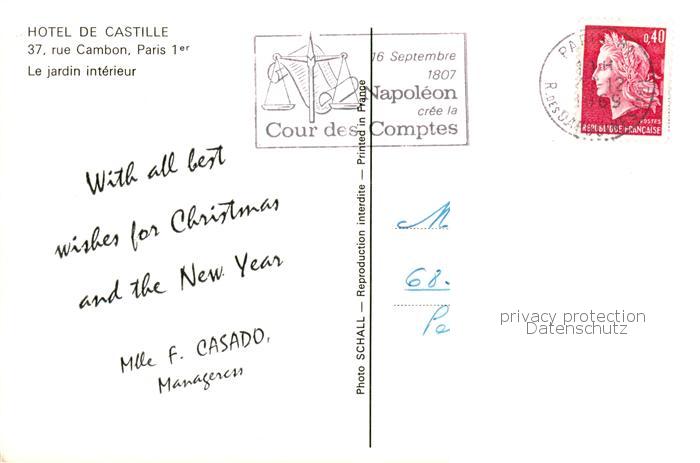 HOTEL DE CASTILLE
37, rue Cambon, Paris 1er
Le jardin intérieur
16 Septembre
1807
Napoléon
crée la
Cour des Comptes
0,40
POSTES
REPUBLIQUE FRANÇAISE
With all best
wishes for Christmas
and the New Year
Mlle F. CASADO,
Manageress
Photo SCHALL — Reproduction interdite — Printed in France
M
68.
Pa
privacy protection
Datenschutz